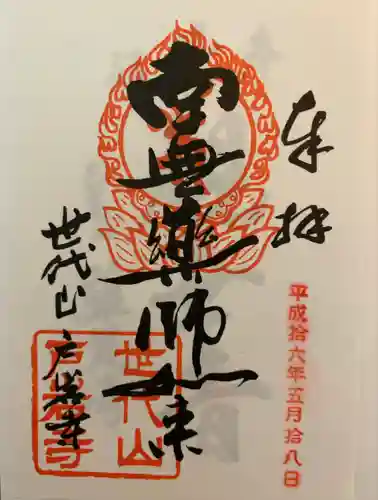 奉拝
平成拾六年五月拾八日
南無薬師如来
世代山
戸岩寺
世代山
戸岩寺